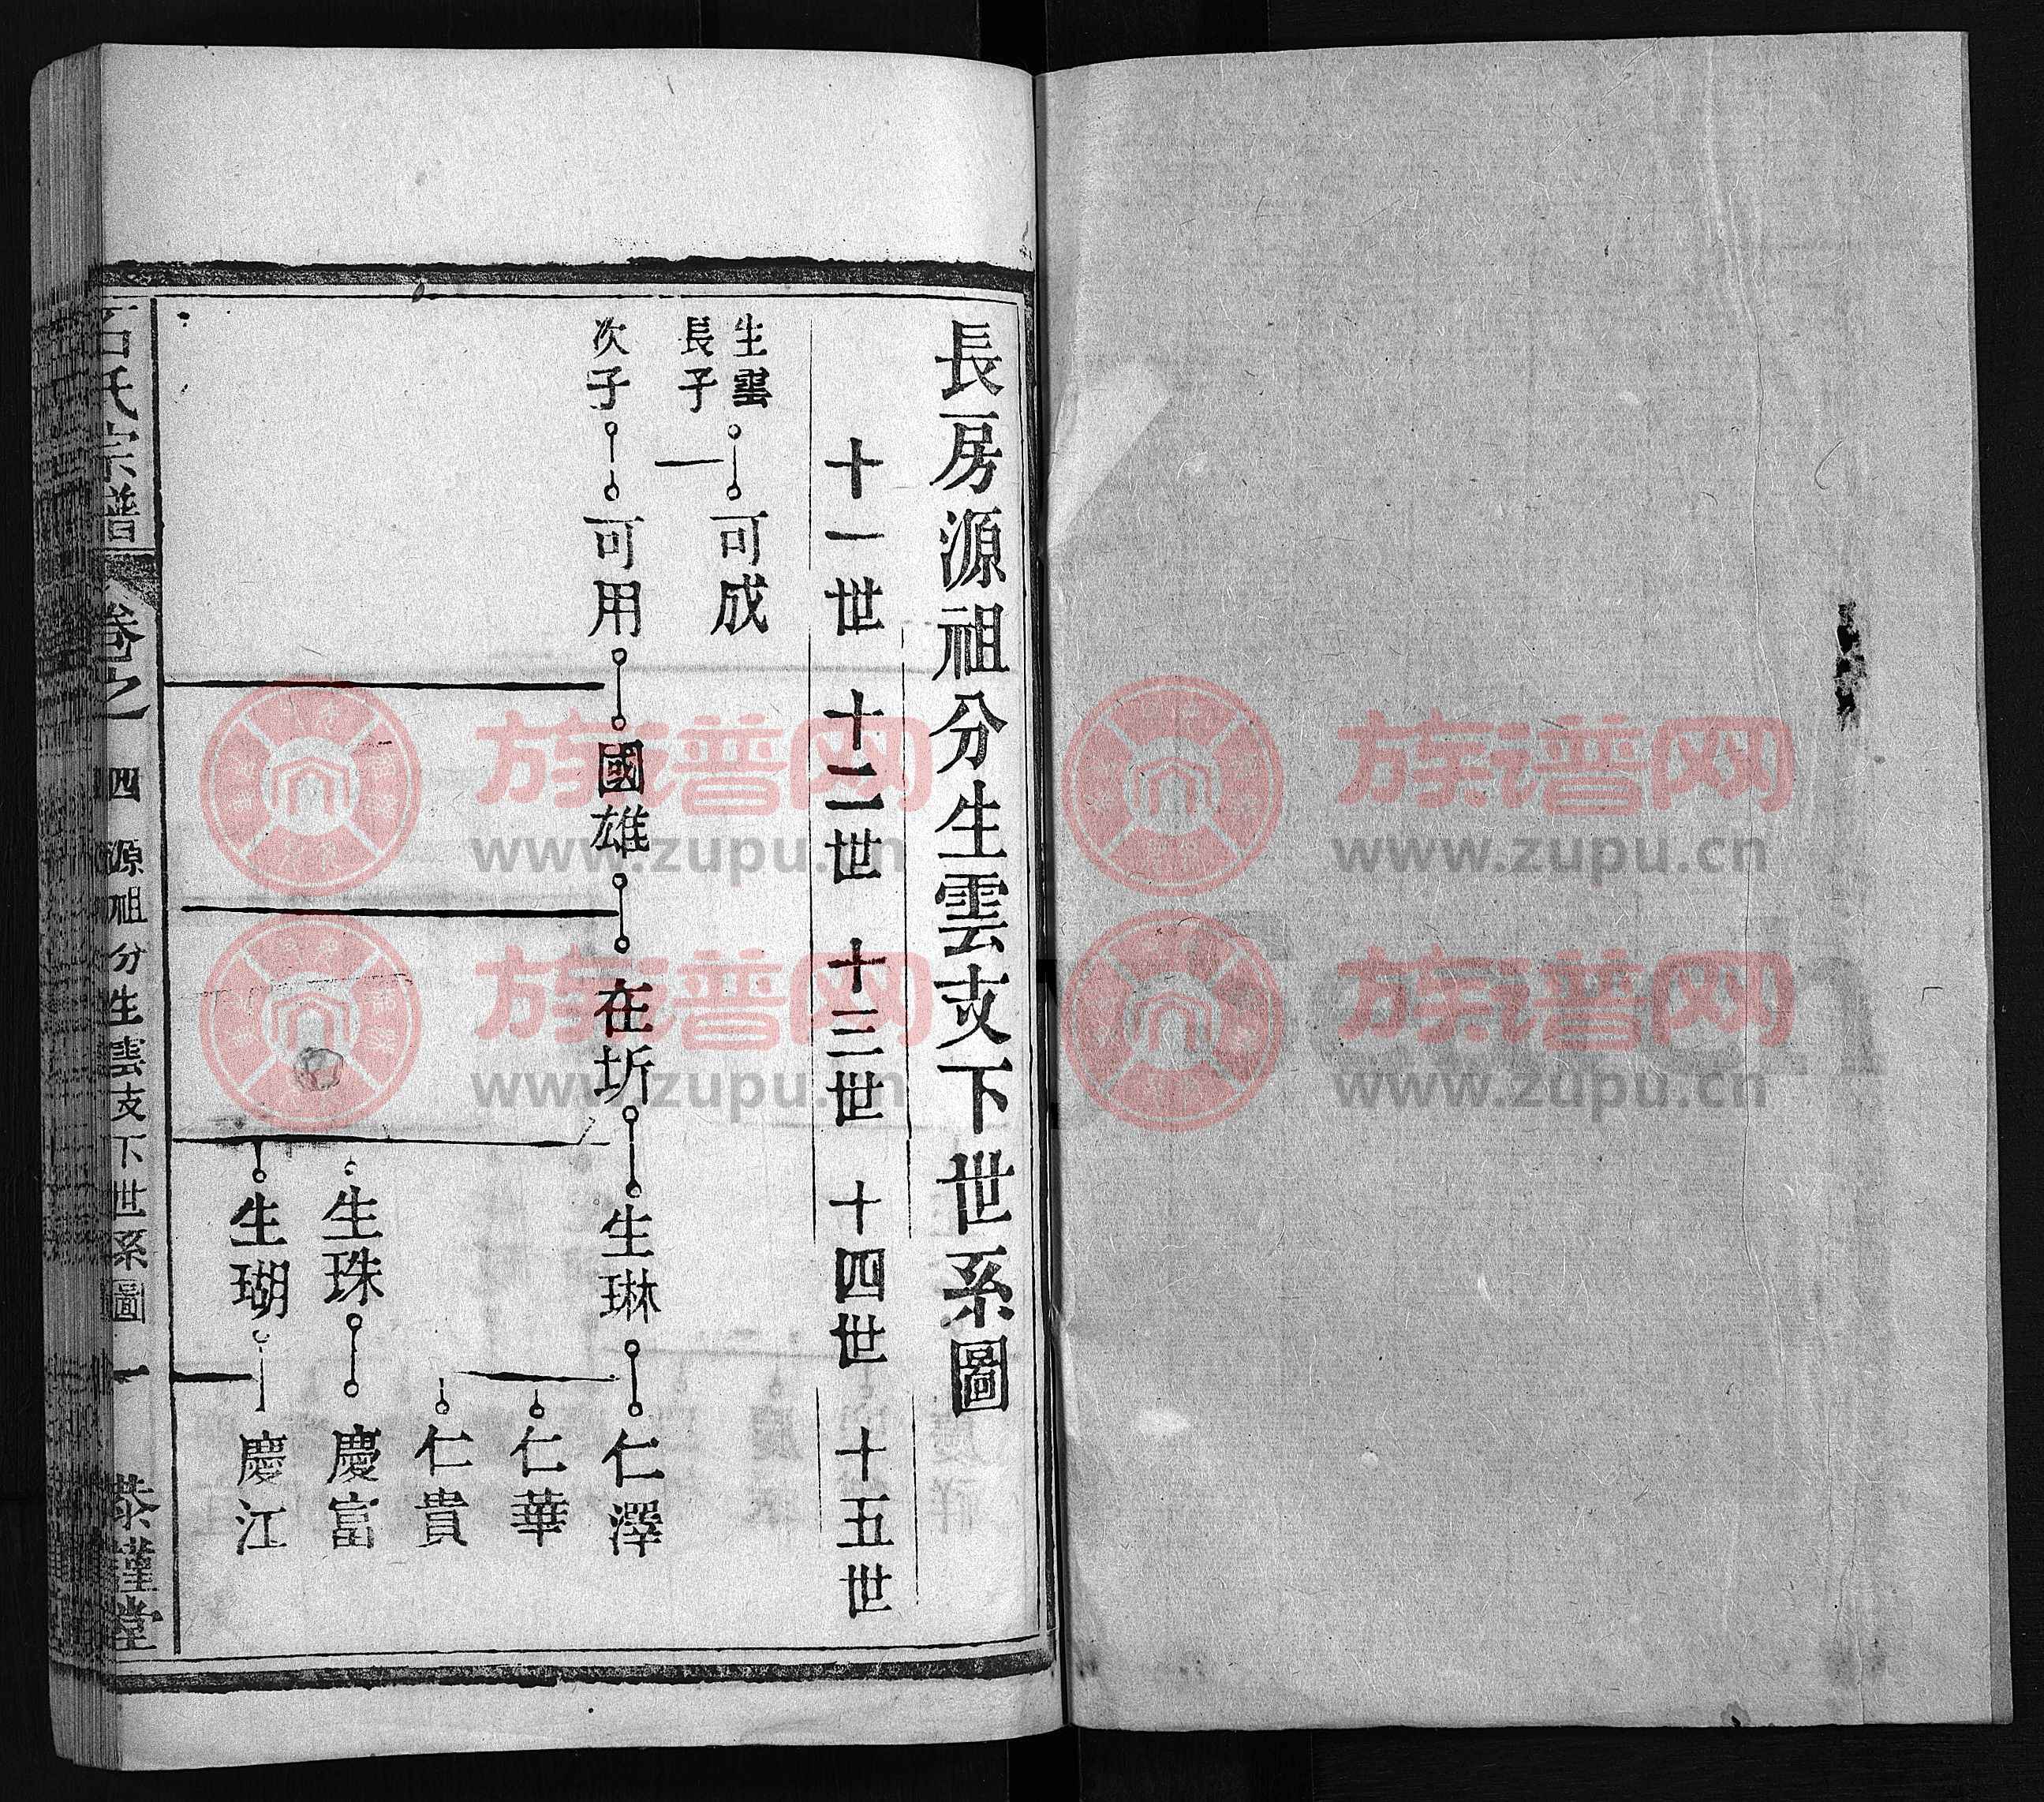 長房源祖分生雲支下世系圖
十一世 十二世 十三世 十四世 十五世
生雲
長子 可成
次子 可用 國雄 在圻 生琳 仁澤
仁華
仁貴
生珠 慶富
生瑚 慶江
石氏宗譜 卷之一 四 源祖分生雲支下世系圖 一 恭謹堂
族谱网
www.zupu.cn
族谱网
www.zupu.cn
族谱网
www.zupu.cn
族谱网
www.zupu.cn